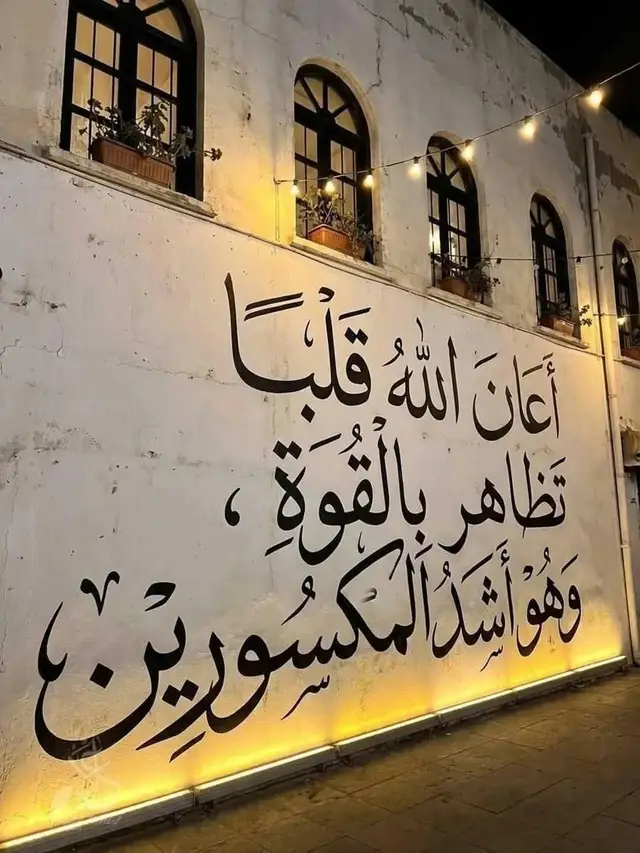 أَعَانَ اللهُ قَلْبًا
تَظاهر بِالْقُوَةِ ،
وَهُوْ أَشَدُ اَلمكسُورِين